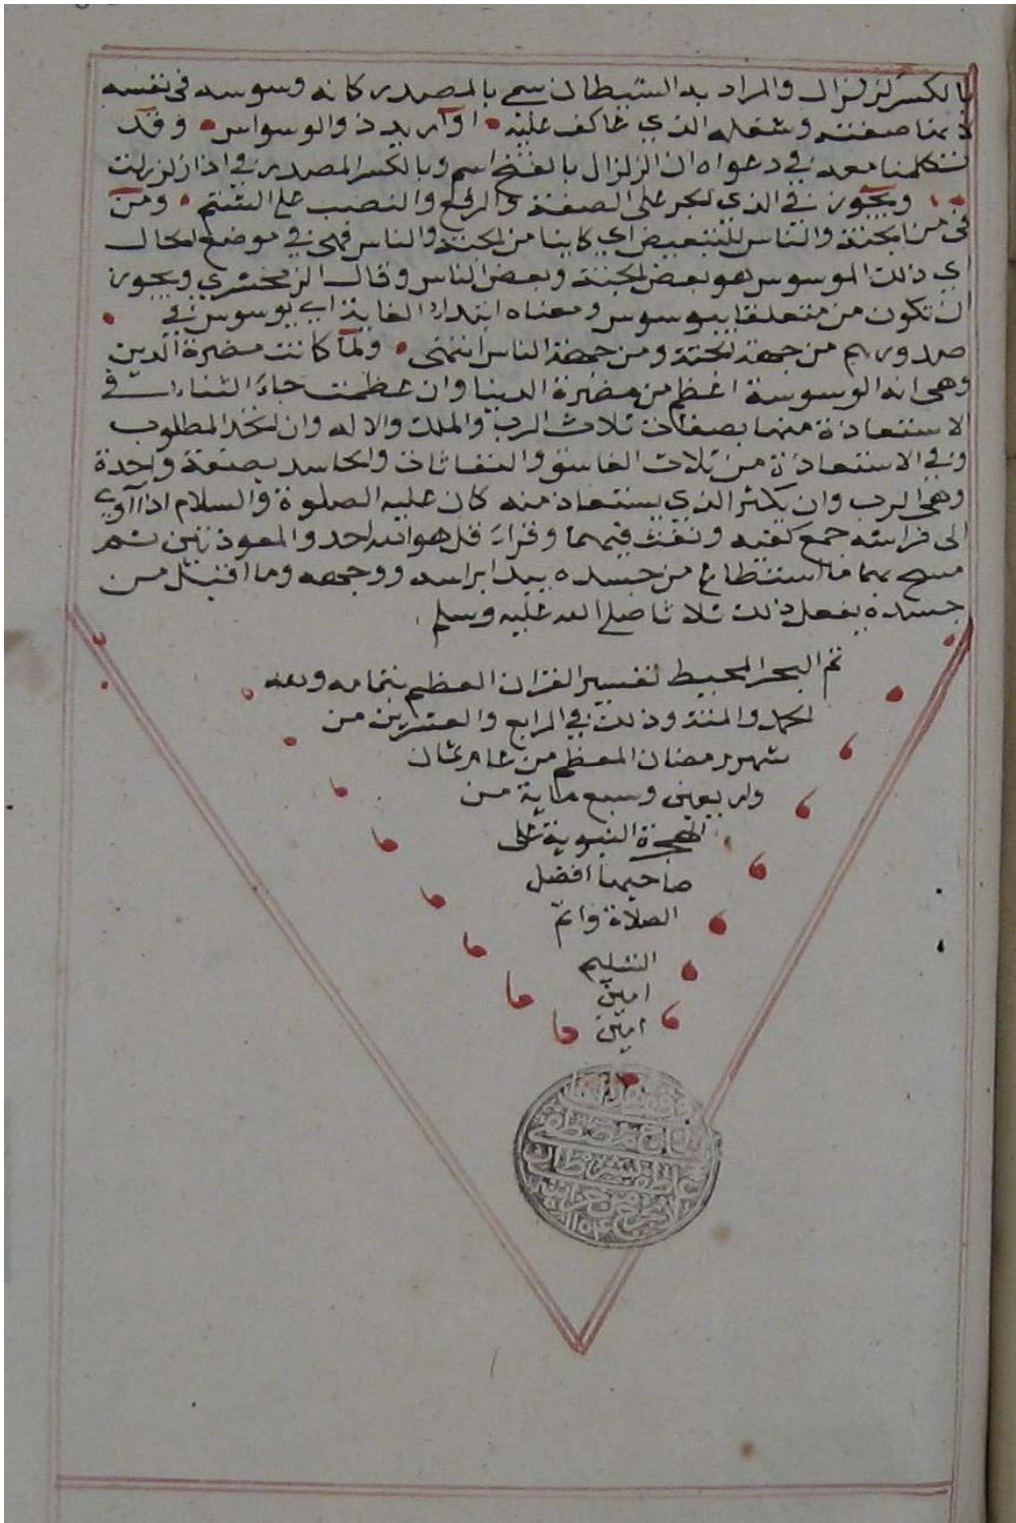 بالكسر كزلزال والمراد به الشيطان سمي بالمصدر كانه وسوسه في نفسه
لانها صنعته وشغله الذي عاكف عليه اواريد ذو الوسواس وقد
تتكلمنا معه في دعواه ان الزلزال بالفتح اسم وبالكسر المصدر في اذا زلزلت
ويجوز في الذي الجر على الصفة والرفع والنصب على الشتم ومن
في من الجنة والناس للتبعيض اي كاينا من الجنة والناس فهي في موضع الحال
اي ذلك الموسوس هو بعض الجنة وبعض الناس وقال الزمخشري ويجوز
ان تكون من متعلقا بيوسوس ومعناه ابتداء الغاية اي يوسوس في
صدورهم من جهة الجنة ومن جهة الناس انتهى ولما كانت مضرة الدين
وهي انه الوسوسة اعظم من مضرة الدنيا وان عظمت جاء الثناء في
الاستعاذة منها بصفات ثلاث الرب والملك والاله وان اتخذ المطلوب
وفي الاستعاذة من ثلاث الغاسق والنفاثات والحاسد بصفة واحدة
وهي الرب وان يكثر الذي يستعاذ منه كان عليه الصلوة والسلام اذا آوى
الى فراشه جمع كفيه ونفث فيهما وقراء قل هو الله احد والمعوذتين ثم
مسح بهما ما استطاع من جسده يبدا براسه ووجهه وما اقبل من
جسده يفعل ذلك ثلاثا صلى الله عليه وسلم
تم البحر المحيط تفسير القران العظم بتمامه ولله
الحمد والمنة وذلك في الرابع والعشرين من
شهر رمضان المعظم من عام ثمان
واربعين وسبع ماية من
الهجرة النبوية على
صاحبها افضل
الصلاة واتم
التسليم
امين
امين